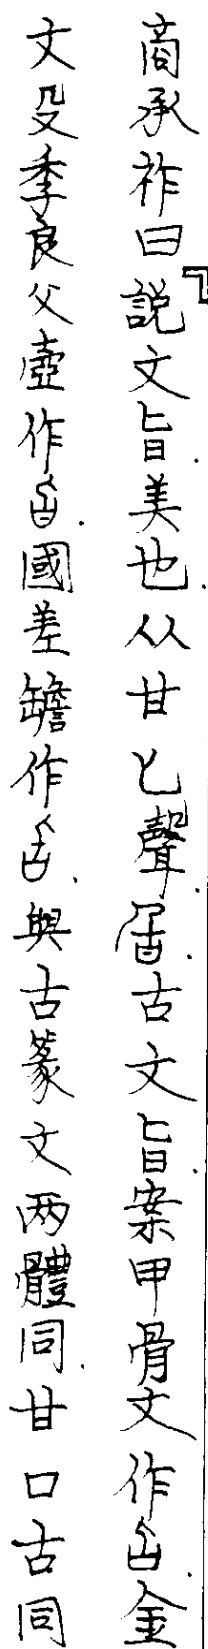 商承祚曰「説文旨美也.从甘匕聲.𣅌古文旨.案甲骨文作.金
文殳季良父壺作.國差𦉜作.與古篆文两體同.甘口古同